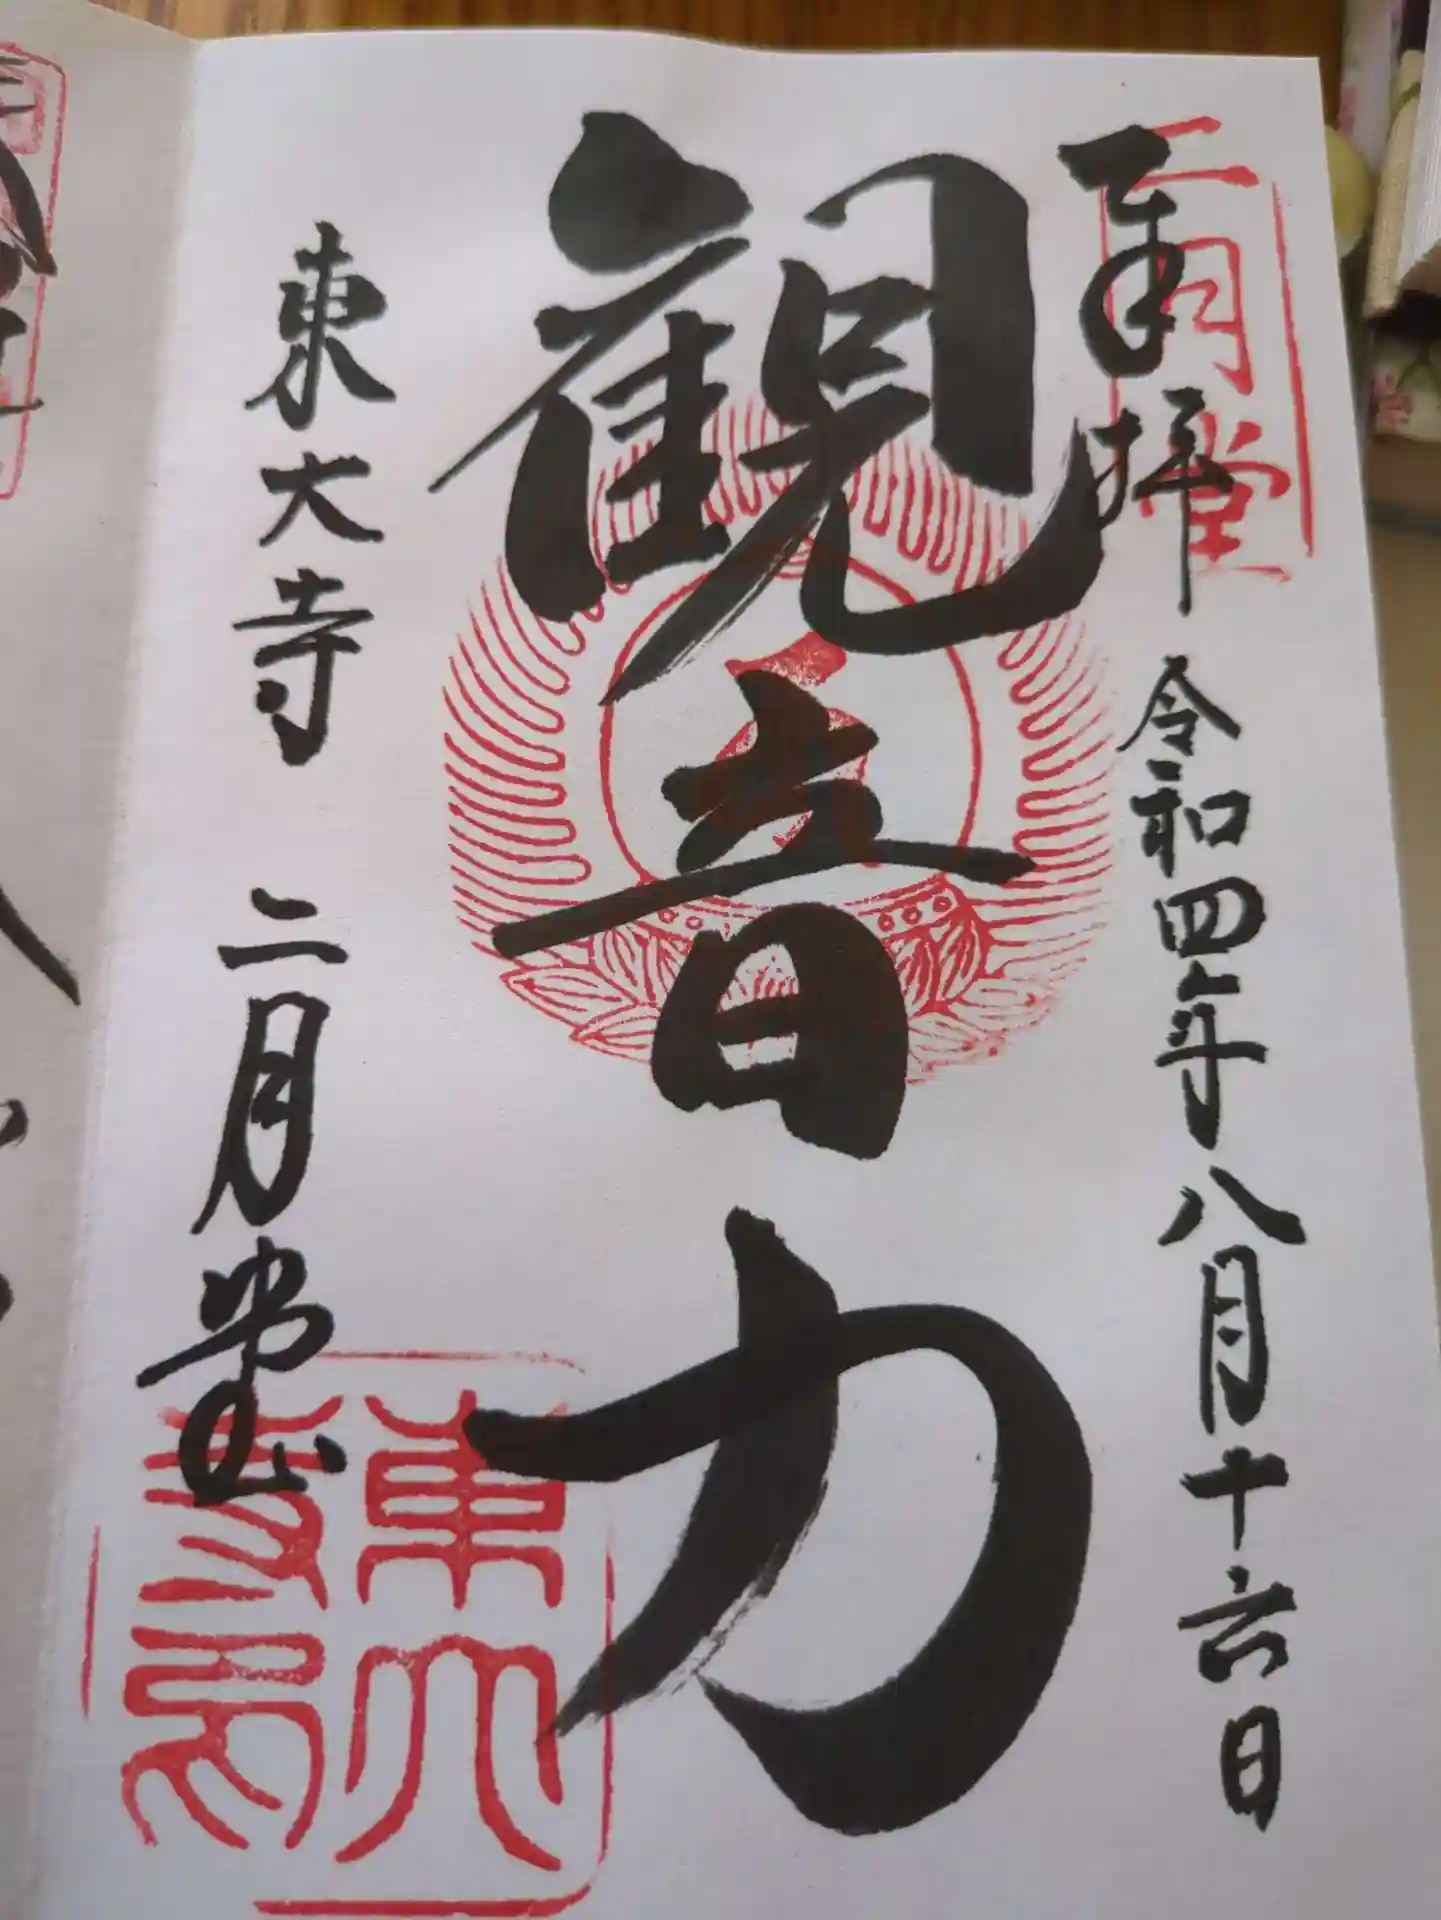 奉拝 令和四年八月十六日
二月堂
観音力
東大寺 二月堂
東大寺印